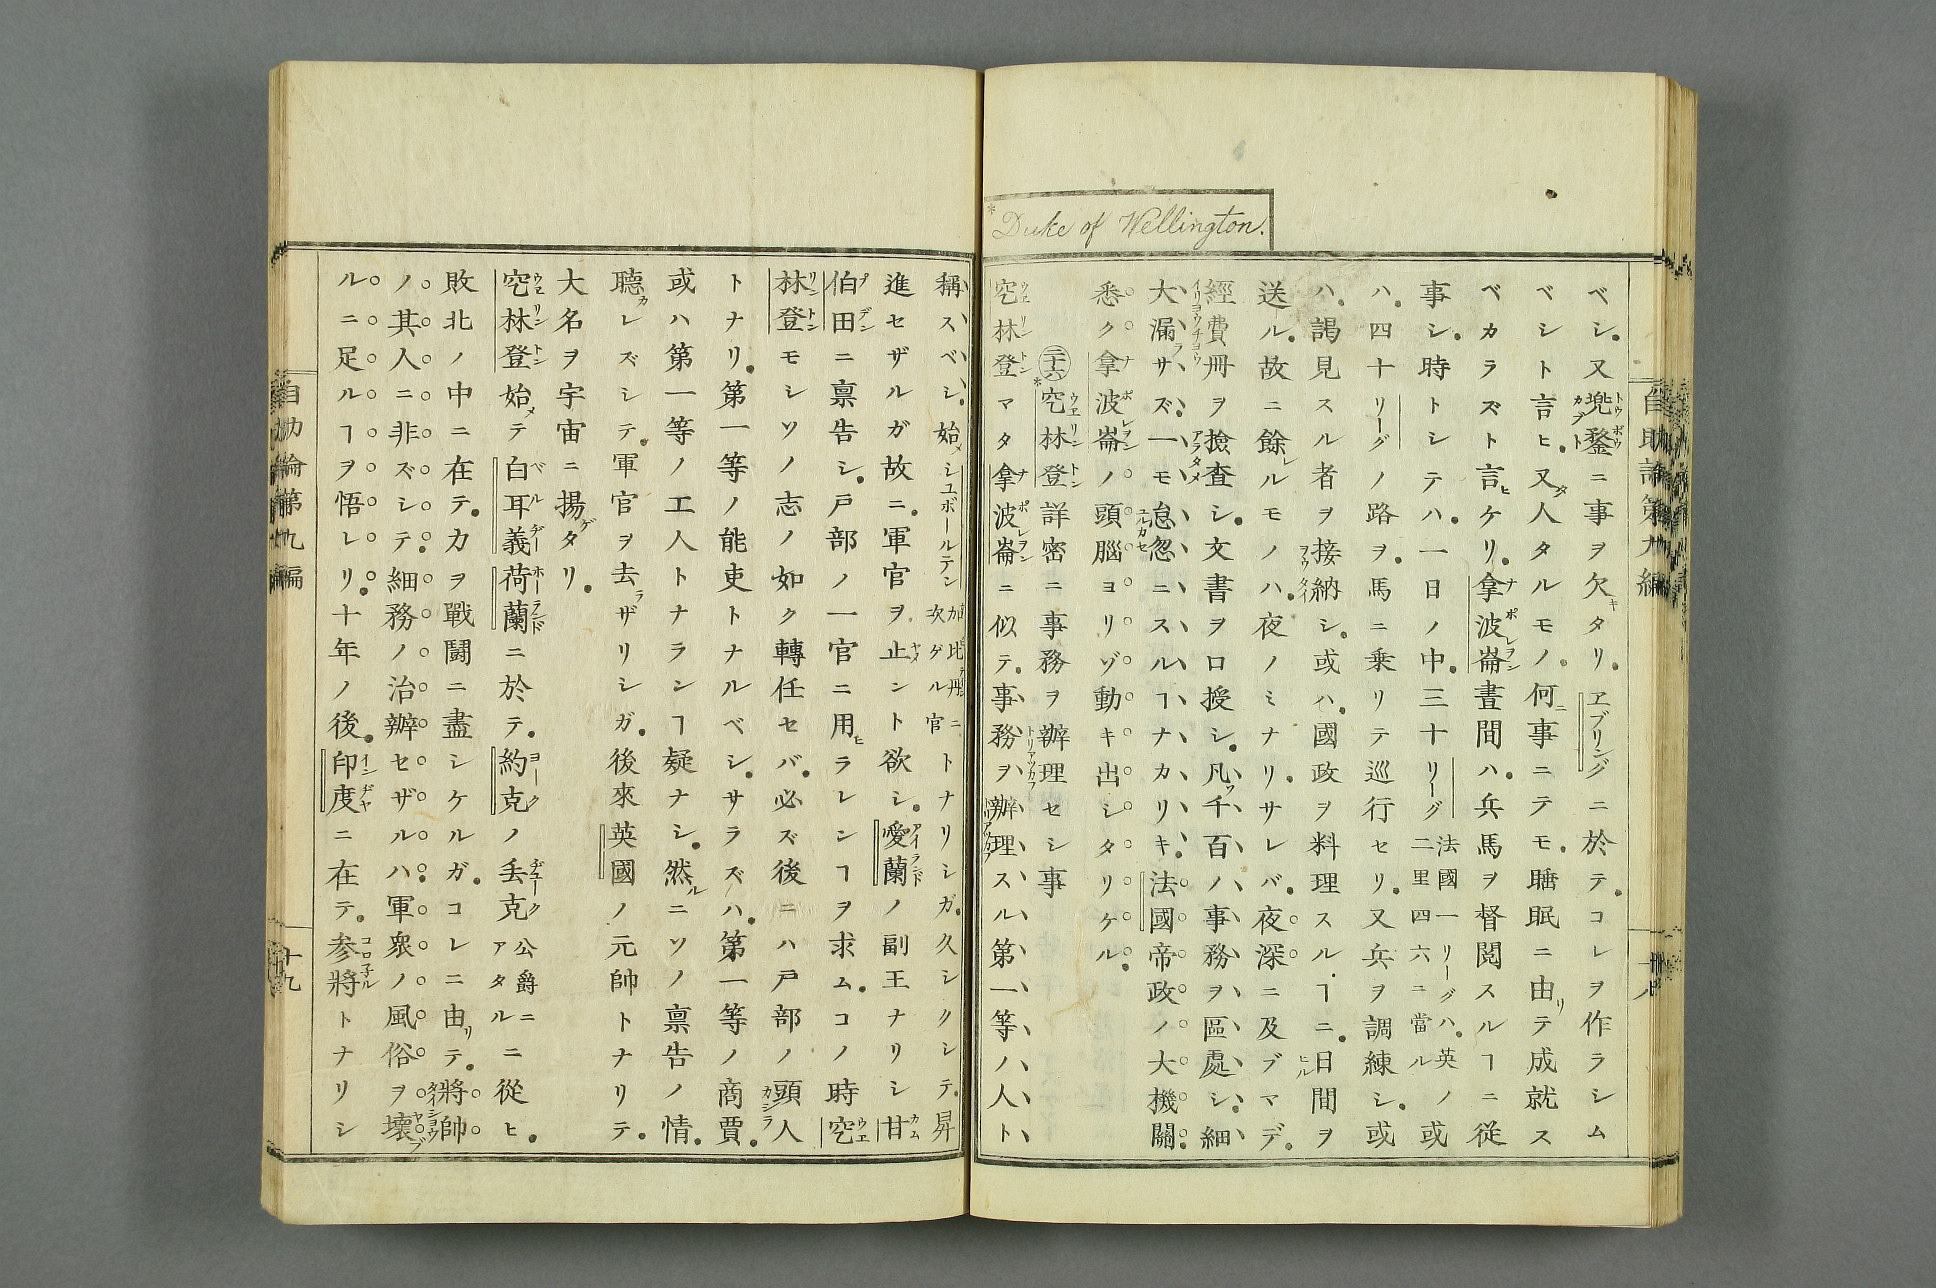 Duke of Wellington.
ベシ。又兜鍪ニ事ヲ欠キタリ。ヱブリングニ於テ。コレヲ作ラシム
ベシト言ヒ。又人タルモノ。何事ニテモ。瞌眠ニ由リテ成就ス
ベカラズト言ヒケリ。拿波崙晝間ハ。兵馬ヲ督閲スルヿニ從
事シ。時トシテハ。一日ノ中。三十リーグ法國一リーグハ。英ノ二里四六ニ當ル或
ハ。四十リーグノ路ヲ。馬ニ乗リテ巡行セリ。又兵ヲ調練シ。或
ハ。謁見スル者ヲ接納シ。或ハ。國政ヲ料理スルヿニ。日間ヲ
送ル。故ニ餘レルモノハ。夜ノミナリ。サレバ。夜深ニ及ブマデ。
經費冊ヲ撿査シ。文書ヲ口授シ。凡ソ千百ノ事務ヲ區處シ。細
大漏ラサズ。一モ怠忽ニスルヿナカリキ。法國帝政ノ大機關。
悉ク拿波崙ノ頭腦ヨリゾ動キ出シタリケル。
二十六 *空林登詳密ニ事務ヲ辦理セシ事
空林登マタ拿波崙ニ似テ。事務ヲ辦理スル第一等ノ人ト
稱スベシ。始メシユボールテン加比丹ニ次グル官トナリシガ。久シクシテ。昇
進セザルガ故ニ。軍官ヲ止ント欲シ。愛蘭ノ副王ナリシ甘
伯田ニ稟告シ。戸部ノ一官ニ用ヒラレンヿヲ求ム。コノ時空
林登モシソノ志ノ如ク轉任セバ。必ズ後ニハ戸部ノ頭人
トナリ。第一等ノ能吏トナルベシ。サラズハ。第一等ノ商賈。
或ハ第一等ノ工人トナランヿ疑ナシ。然ルニソノ稟告ノ情。
聽カレズシテ。軍官ヲ去ラザリシガ。後來英國ノ元帥トナリテ。
大名ヲ宇宙ニ揚ゲタリ。
空林登始メテ白耳義荷蘭ニ於テ。約克ノ丢克公爵ニアタルニ從ヒ。
敗北ノ中ニ在テ。力ヲ戰鬪ニ盡シケルガ。コレニ由リテ。將帥
ノ其人ニ非ズシテ。細務ノ治辦セザルハ。軍衆ノ風俗ヲ壞
ルニ足ルヿヲ悟レリ。十年ノ後。印度ニ在テ。参將トナリシ
自助論第九編
十九